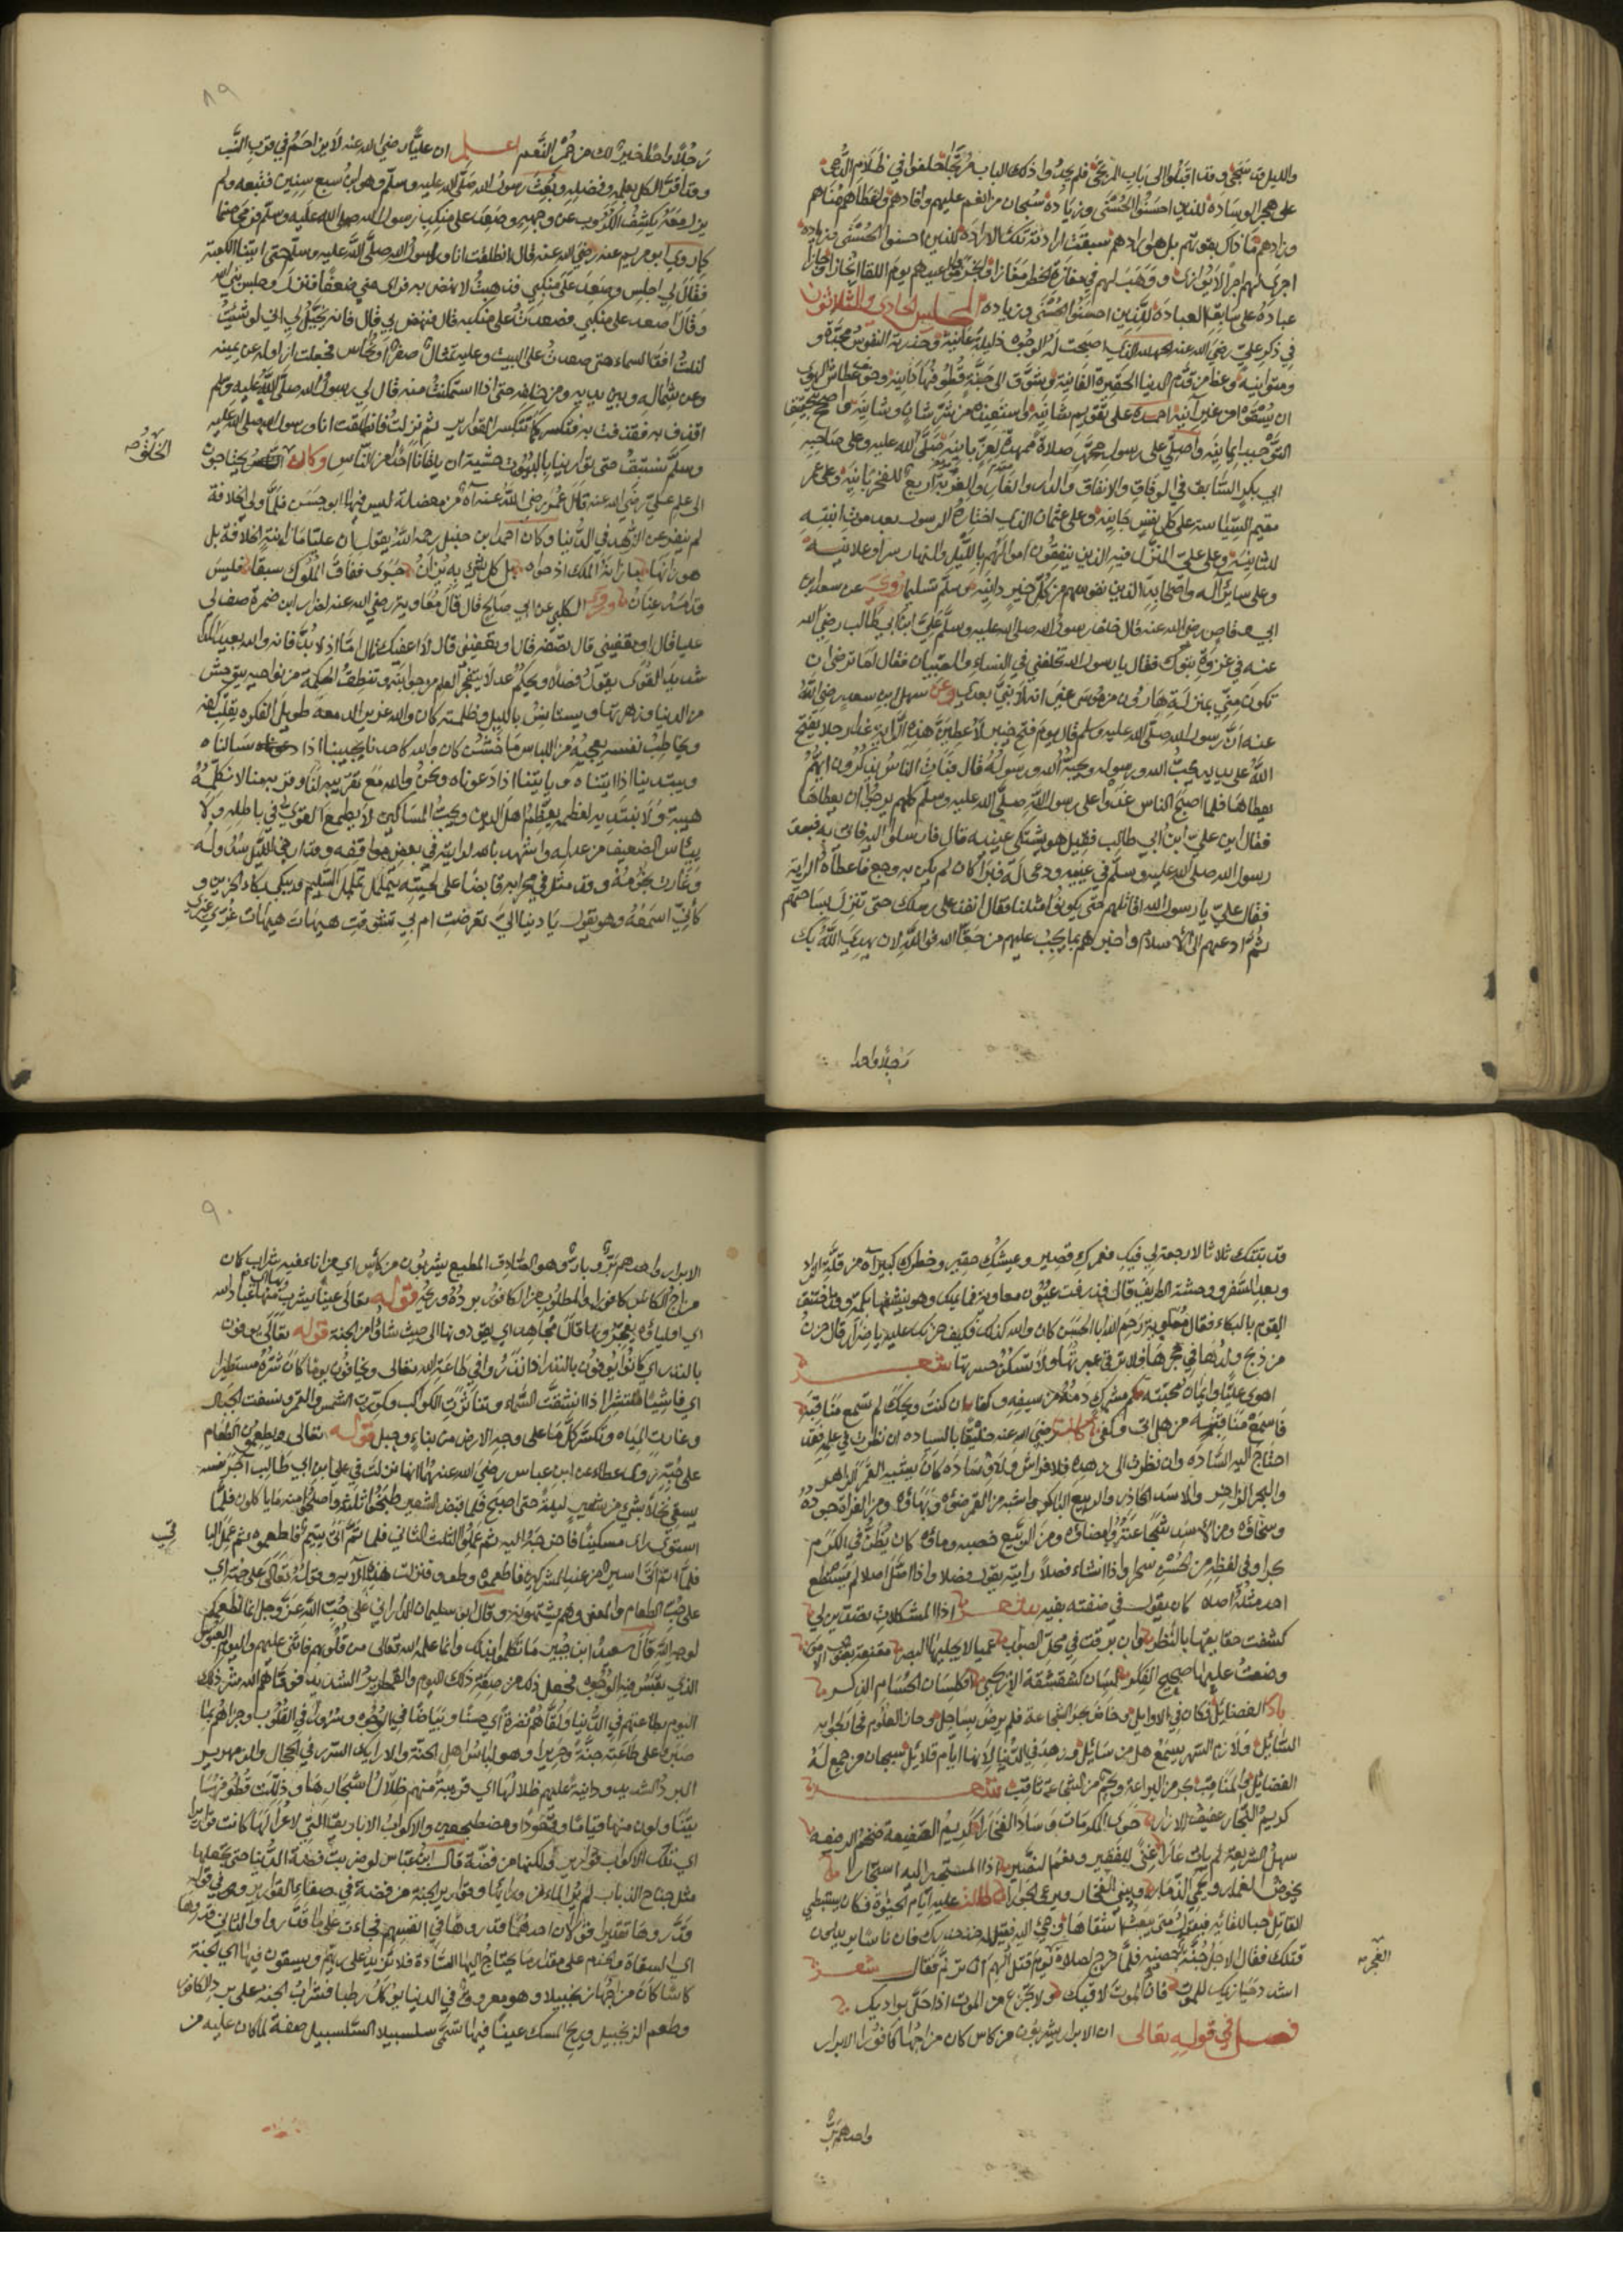 والليل قد سجى وقد اقبلوا الى باب المرتجى فلم يجدوا ذلك الباب مرتجا حلفوا في ظلام الدجى
على هجر الوساده للذين احسنوا الحسنى وزياده سبحان من انعم عليهم وافادهم واعطاهم مناهم
وزادهم ما ذاك بقوتهم بل هو ارادهم سبقت ارادته تلك الاراده للذين احسنوا الحسنى وزياده
اجرى لهم اجرا لا يوازى ووهب لهم في مفازة الخطر مفازا
عباده على سابق العباده للذين احسنوا الحسنى وزياده المجلس الحادي والثلاثون
في ذكر علي رضي الله عنه الحمد لله الذي اصبحت له الوجوه ذليلة عانية وحذرته النفوس مجدة و
ومتوانية وعظ من قدم الدنيا الحقيرة الفانية وشوق الى جنة قطوفها دانية وخوف عطاش الهوى
ان يسقوا من عين آنية احمده على تقويم شانيه واستعينه من شر شان وشانيه واحصل بتحقيق
التوحيد ايمانيه واصلي على رسوله محمد صلاة ممهدة لعز بانيه صلى الله عليه وعلى صاحبه
ابي بكر السابق في الوفاق والانفاق والدار والغار والغربة اربع للفخر بانيه وعلى عمر
مقيم السياسة على كل نفس جانيه وعلى عثمان الذي اختاره الرسول بعد موت ابنته
للثانيه وعلى علي المنزل فيه الذين ينفقون اموالهم بالليل والنهار سرا وعلانيه
وعلى سائر آله واصحابه الذين نفوسهم من كل خير دانيه وسلم تسليما روي عن سعد بن
ابي وقاص رضي الله عنه قال خلف رسول الله صلى الله عليه وسلم علي ابن ابي طالب رضي الله
عنه في غزوة تبوك فقال يا رسول الله تخلفني في النساء والصبيان فقال اما ترضى ان
تكون مني بمنزلة هارون من موسى غير انه لا نبي بعدي وعن سهل ابن سعد رضي الله
عنه ان رسول الله صلى الله عليه وسلم قال يوم فتح خيبر لاعطين هذه الراية غدا رجلا يفتح
الله على يديه يحب الله ورسوله ويحبه الله ورسوله قال فبات الناس يذكرون ايهم
يعطاها فلما اصبح الناس غدوا على رسول الله صلى الله عليه وسلم كلهم يرجو ان يعطاها
فقال اين علي ابن ابي طالب فقيل هو يشتكي عينيه قال فارسلوا اليه فاتى به فبصق
رسول الله صلى الله عليه وسلم في عينيه ودعى له فبرا كان لم يكن به وجع فاعطاه الراية
فقال علي يا رسول الله اقاتلهم حتى يكونوا مثلنا فقال انفذ على رسلك حتى تنزل بساحتهم
ثم ادعهم الى الاسلام واخبرهم بما يجب عليهم من حق الله فوالله لان يهدي الله بك
رجلا واحدا
٨٩
رجلا واحدا خير لك من حمر النعم اعلم ان عليا رضي الله عنه لا يزاحم في قرب النسب
وقد اقر الكل بعلمه وفضله وبعث رسول الله صلى الله عليه وسلم وهو ابن سبع سنين فتبعه ولم
يزل معه يكشف الكروب عن وجهه وصعد على منكب رسول الله صلى الله عليه وسلم فرمى صنما
كما روى ابو مريم عنه رضي الله عنه قال انطلقت انا ورسول الله صلى الله عليه وسلم حتى اتينا الكعبة
فقال لي اجلس وصعد على منكبي فذهبت لانهض به فراى مني ضعفا فنزل وجلس نبي الله
وقال اصعد على منكبي فصعدت على منكبه قال فنهض بي قال فانه يخيل لي اني لو شئت
لنلت افق السماء حتى صعدت على البيت وعليه تمثال صفر او نحاس فجعلت ازاوله عن يمينه
وعن شماله وبين يديه ومن خلفه حتى اذا استمكنت منه قال لي رسول الله صلى الله عليه وسلم
اقذف به فقذفت به فتكسر كما تتكسر القوارير ثم نزلت فانطلقت انا ورسول الله صلى الله عليه
وسلم نستبق حتى توارينا بالبيوت خشية ان يلقانا احد من الناس وكان يحتاجون
الخلق صح
الى علم علي رضي الله عنه قال عمر رضي الله عنه آه من معضلة ليس فيها ابو حسن فلما ولي الخلافة
لم يتغير عن الزهد في الدنيا وكان احمد ابن حنبل رحمه الله يقول ان عليا ما زانته الخلافة بل
هو زانها ما زانه الملك اذ حواه بل كل شيء به يزان حوى ففاق الملوك سبقا فليس
قدامه عنان وروى الكلبي عن ابي صالح قال قال معاوية رضي الله عنه لضرار ابن ضمرة صف لي
عليا فقال او تعفيني قال بل تصفه قال او تعفيني قال لا اعفيك قال اما اذ لا بد فانه والله بعيد المدى
شديد القوى يقول فصلا ويحكم عدلا يتفجر العلم من جوانبه وتنطق الحكمة من نواحيه يستوحش
من الدنيا وزهرتها ويستانس بالليل وظلمته كان والله غزير الدمعة طويل الفكرة يقلب كفه
ويخاطب نفسه يعجبه من اللباس ما خشن كان والله كاحدنا يجيبنا اذا سالناه
ويبتدينا اذا اتيناه وياتينا اذا دعوناه ونحن والله مع تقريبه لنا وقربه منا لا نكلمه
هيبة ولا نبتديه لعظمه يعظم اهل الدين ويحب المساكين لا يطمع القوي في باطله ولا
ييئس الضعيف من عدله واشهد بالله لرايته في بعض مواقفه وقد ارخى الليل سدوله
وغارت نجومه وقد مثل في محرابه قابضا على لحيته يتململ تململ السليم ويبكي بكاء الحزين و
كأني اسمعه وهو يقول يا دنيا الي تعرضت ام بي تشوقت هيهات هيهات غري غيري
قد بتتك ثلاثا لا رجعة لي فيك فعمرك قصير وعيشك حقير وخطرك كبير آه من قلة الزاد
وبعد السفر ووحشة الطريق قال فذرفت عيون معاوية فما يملك وهو ينشفها بكمه وقد اختنق
القوم بالبكاء فقال معاوية رحم الله ابا الحسن كان والله كذلك فكيف حزنك عليه يا ضرار قال حزن
من ذبح ولدها في حجرها فلا ترقى عبرتها ولا تسكن حسرتها شعر
اهوى عليا وايمان محبته كم مشرك دمه من سيفه وكفا ان كنت ويحك لم تسمع مناقبه
فاسمع مناقبه من هل اتى وكفى كان رضي الله عنه خليقا بالسياده ان نظرت في علمه فقد
احتاج اليه الساده وان نظرت الى زهده فلا فراش ولا وساده كان يشبه القمر الزاهر
والبحر الزاخر والاسد الحاذر والربيع الباكر اشبه من القمر ضوءه وبهاؤه ومن الفرات جوده
وسخاؤه ومن الاسد شجاعته ومضاؤه ومن الربيع خصبه وماؤه كان يظن في الكرم
بحرا وفي لفظه من الحسن سحرا واذا انشاء فصلا رايته يقول فصلا واذا امثل اصلا لم يستطع
احد مثله اصلا كان يقول في صفته بغيه شعر اذا المشكلات تصدين لي
كشفت حقايقها بالنظر وان برقت في محل الصواب عميا لا يجليها البصر مقنعة بغيوب الامور
وضعت عليها صحيح الفكر لسان كشقشقة الارحبي او كلسان الحسام الذكر
الفضائل فكان في الاوايل وخاض بحر الشجاعة فلم يرض بساحل وحاز العلوم فحار لجوابه
السائل ولازم السهر يسمع هل من سائل وزهد في الدنيا لانها ايام قلائل سبحان من جمع له
الفضائل والمناقب بحر من البراعة ونجم من الشجاعة ثاقب شعر
كريم النجار عفيف الازار حوى المكرمات وساد الفخارا كريم الصنيعة ضخم الدسيعة
سهل الشريعة لم يات عارا غنى للفقير ونعم النصير اذا المستجير اليه استجارا
يخوض الغمار ويحمي الذمار ويبني الفخار ويرعى الجوارا طالت عليه ايام الحيوة فكان يستبطي
القاتل حبا للقائه فيقول متى يبعث اشقاها فجيء اليه فقيل له خذ حذرك فان ناسا يريدون
قتلك فقال الاجل جنة حصينة فلما خرج لصلاة يوم قتل الهم ان ترنم فقال شعر
الفجر صح
اشدد حيازيمك للموت فان الموت لاقيك ولا تجزع من الموت اذا حل بواديك
فصل في قوله تعالى ان الابرار يشربون من كاس كان مزاجها كافورا الابرار
واحدهم بر
٩٠
الابرار واحدهم بر وبار وهو الصادق المطيع يشربون من كأس اي من اناء فيه شراب كان
مزاج الكاس كافورا والمطلوب من الكافور برده وريحه قوله تعالى عينا يشرب بها عباد الله
اي اولياؤه يفجرونها قال مجاهد اي يقودونها الى حيث شاؤا من الجنة قوله تعالى يوفون
بالنذر اي كانوا يوفون بالنذر اذا نذروا في طاعة الله تعالى ويخافون يوما كان شره مستطيرا
اي فاشيا منتشرا اذا انشقت السماء وتناثرت الكواكب وكورت الشمس والقمر ونسفت الجبال
وغارت المياه وتكسر كل ما على وجه الارض من بناء وجبل قوله تعالى ويطعمون الطعام
على حبه روى عطاء عن ابن عباس رضي الله عنهما انها نزلت في علي ابن ابي طالب اجر نفسه
يسقي نخلا بشيء من شعير ليلة حتى اصبح فلما قبض الشعير طحنوا ثلثه واصلحوا منه ما ياكلون فلما
استوى اتى مسكين فاخرجوه اليه ثم عملوا الثلث الثاني فلما تم اتى يتيم فاطعموه ثم عمل الباقي
فلما تم اتى اسير من المشركين فاطعموه وطووا فنزلت هذه الآيه وقوله تعالى على حبه اي
على حب الطعام والمعنى وهم يشتهونه وقال ابو سليمان الداراني على حب الله عز وجل انما نطعمكم
لوجه الله قال سعيد ابن جبير ما تكلموا بذلك وانما علمه الله تعالى من قلوبهم فاثنى عليهم واليوم العبوس
الذي تعبس فيه الوجوه فجعل ذلك من صفة ذلك اليوم والقمطرير الشديد فوقاهم الله شر ذلك
اليوم بطاعتهم في الدنيا ولقاهم نضرة اي حسنا وبياضا في الوجوه وسرورا في القلوب وجزاهم بما
صبروا على طاعته جنة وحريرا وهو لباس اهل الجنة والارايك السرر في الحجال والزمهرير
البرد الشديد ودانية عليهم ظلالها اي قريبة منهم ظلال اشجارها وذللت قطوفها
يتناولون منها قياما وقعودا ومضطجعين والاكواب الاباريق التي لا عرى لها كانت قواريرا
اي تلك الاكواب قوارير ولكنها من فضة قال ابن عباس لو ضربت فضة الدنيا حتى جعلتها
مثل جناح الذباب لم ير الماء من ورائها وقوارير الجنة من فضة في صفاء القوارير وفي قوله
قدروها تقديرا قولان احدهما قدروها في انفسهم فجاءت على ما قدروا والثاني قدروها
اي السقاة والخدم على مقدار ما يحتاج اليها السادة فلا تزيد على ريهم ويسقون فيها اي الجنة
كاسا كان مزاجها زنجبيلا وهو معروف في الدنيا يؤكل رطبا فشراب الجنة على برد الكافور
وطعم الزنجبيل وريح المسك عينا فيها تسمى سلسبيلا السلسبيل صفة لما كان عليه من